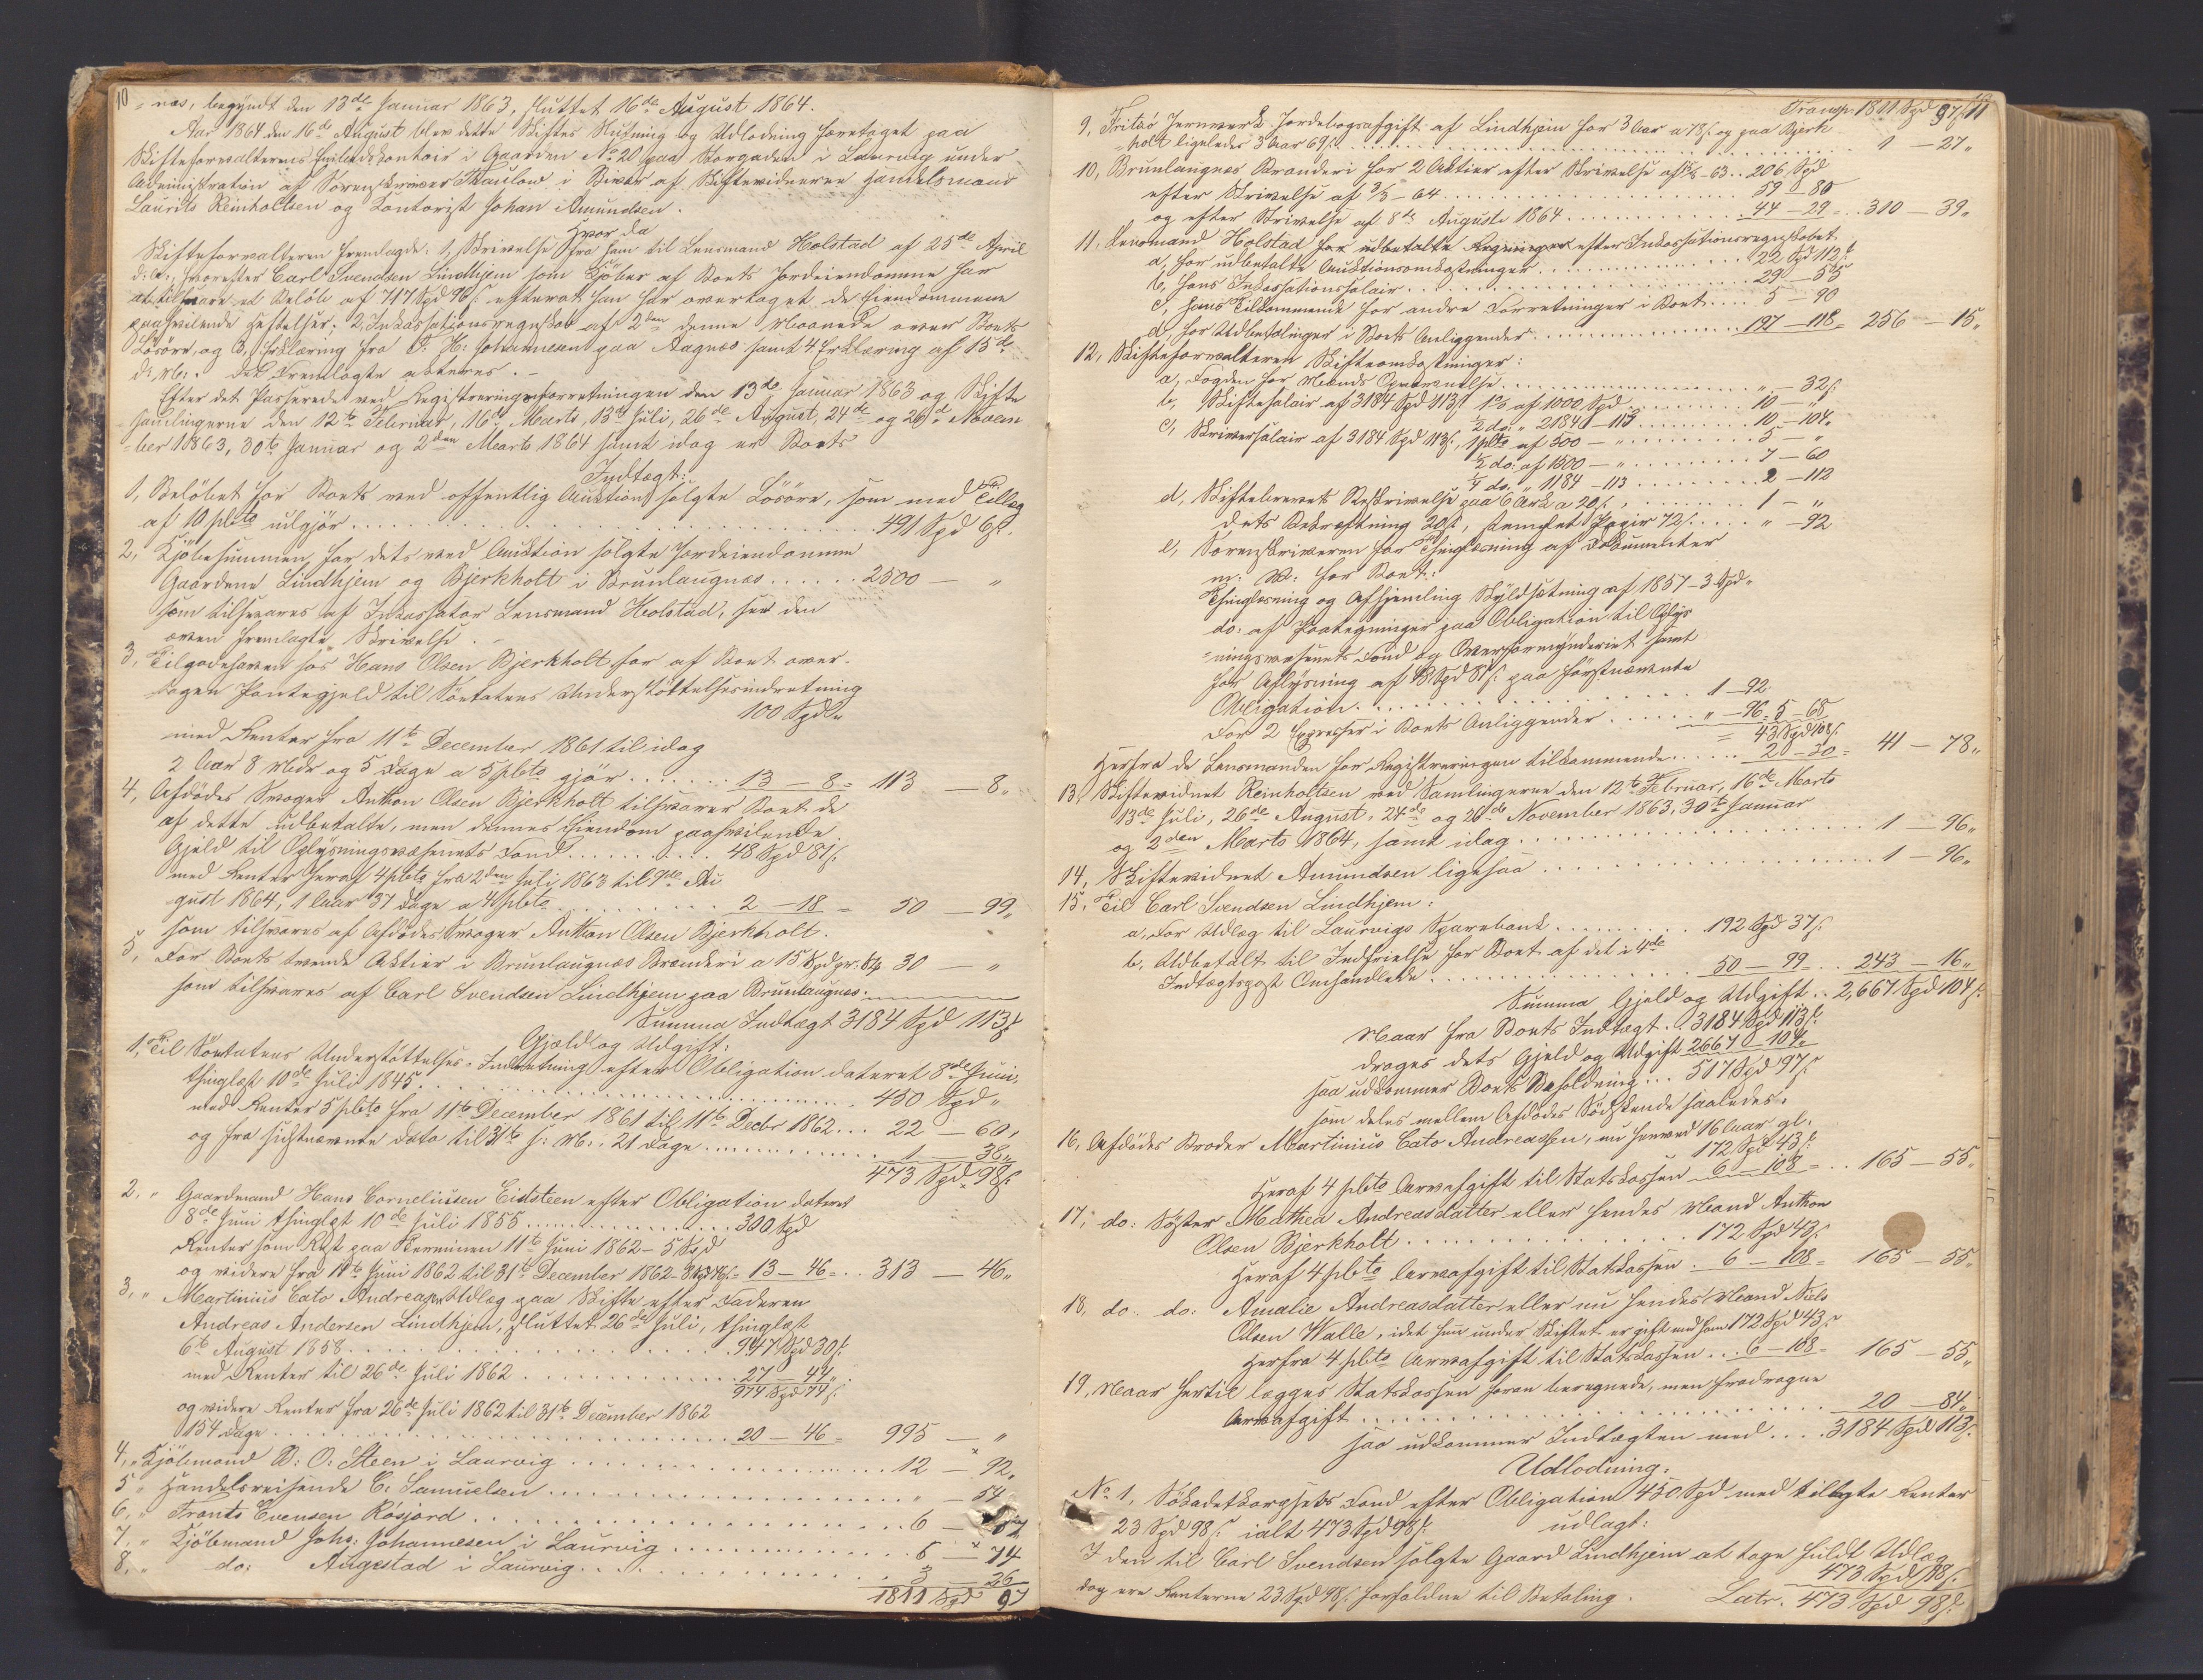 10
næs, begyndt den 13de Januar 1863, sluttet 16de August 1864.
Aar 1864 den 16de August blev dette Skiftes Slutning og Udlodning foretaget paa
Skifteforvalterens Embedskontoir i Gaarden No 20 paa Storgaden i Laurvig under
Administration af Sorenskriver Thaulow i Bivær af Skiftevidnerne Handelsmand
Laurits Reinholtsen og Kontorist Johan Amundsen.
Hvor da
Skifteforvalteren fremlagde: 1, Skrivelse fra ham til Lensmand Holstad af 25de April
d: A:, hvorefter Carl Svendsen Lindhjem som Kjøber af Boets Jordeiendomme har
at tilsvare et Beløb af 717 Spd 96 s. efterat han har overtaget de Eiendommene
paahvilende Heftelser; 2, Inkassationsregnskab af 2den denne Maaned over Boets
Løsøre, og 3, Erklæring fra O: H: Johannesen paa Aagnæs samt 4 Erklæring af 15de
d: M:. Det Fremlagte acteres. —
Efter det Passerede ved Registreringsforretningen den 13de Januar 1863 og Skifte
samlingerne den 12te Februar, 16de Marts, 13de Juli, 26de August, 24de og 26de Novem
ber 1863, 30te Januar og 2den Marts 1864 samt idag er Boets
Indtægt:
1, Beløbet for Boets ved offentlig Auktion solgte Løsøre, som med Tillæg
af 10 pCto udgjør ... 491 Spd 6 s.
2, Kjøbesummen for dets ved Auktion solgte Jordeiendomme
Gaardene Lindhjem og Bjerkholt i Brunlaugnæs ...... 2500 — "
som tilsvares af Inkassator Lensmand Holstad, see den
oven fremlagte Skrivelse. —
3, Tilgodehaven hos Hans Olsen Bjerkholt for af Boet over-
tagen Pantegjeld til Søetatens Understøttelsesindretning
100 Spd "
med Renter fra 11te December 1861 til idag
2 Aar 8 Mdr og 5 Dage a 5 pCto gjør ...... 13 — 8 = 113 — 8 "
4, Afdødes Svoger Anthon Olsen Bjerkholt tilsvarer Boet de
af dette udbetalte, men dennes Eiendom paahvilende
Gjeld til Oplysningsvæsenets Fond ...... 48 Spd 81 s.
med Renter heraf 4 pCto fra 2den Juli 1863 til 9de Au
gust 1864, 1 Aar 37 Dage a 4 pCto ...... 2 — 18 = 50 — 99 "
som tilsvares af Afdødes Svoger Anthon Olsen Bjerkholt.
5, For Boets tvende Aktier i Brunlaugnæs Brænderi a 15 Spd pr: Stk 30 — "
som tilsvares af Carl Svendsen Lindhjem paa Brunlaugnæs.
Summa Indtægt 3184 Spd 113 s
Gjæld og Udgift:
1, Til Søetatens Understøttelses-Indretning efter Obligation dateret 8de Juni,
thinglæst 10de Juli 1845 ...... 450 Spd "
med Renter 5 pCto fra 11te December 1861 til 11te Decbr 1862 ... 22 — 60 "
og fra sidstnævnte Dato til 31te s: M: . 21 Dage ...... 1 — 38 "
473 Spd 98 s.
2, " Gaardmand Hans Corneliussen Eidsteen efter Obligation dateret
8de Juni thinglæst 10de Juli 1855 ...... 300 Spd
Renter som Rest paa Terminen 11te Juni 1862 — 5 Spd
og videre fra 11te Juni 1862 til 31te December 1862 - 8 Spd 46 s = 13 — 46 = .. 313 — 46 "
3, " Martinius Cato Andreasen Udlæg paa Skifte efter Faderen
Andreas Andersen Lindhjem, sluttet 26de Juli, thinglæst
6te August 1858 ...... 947 Spd 30 s.
med Renter til 26de Juli 1862 ...... 27 — 44 "
974 Spd 74 s.
og videre Renter fra 26de Juli 1862 til 31te December 1862
154 Dage ...... 20 — 46 = 995 — "
4, " Kjøbmand B: O: Steen i Laurvig ...... 12 — 92 "
5 " Handelsreisende C: Samuelsen ...... " — 54
6, " Frants Evensen Røsjord ...... 6 — 57
7, " Kjøbmand Johs: Johannesen i Laurvig ...... 5 — 74
8, " do: Augestad i Laurvig ...... 3 — 26
1811 Spd 97
11
Transp. 1811 Spd 97 s
9, Fritzø Jernværk Jordebogsafgift af Lindhjem for 3 Aar a 78 s. og paa Bjerk
holt ligeledes 3 Aar 69 s. ...... 1 — 27 "
10, Brunlaugnæs Brænderi for 2 Aktier efter Skrivelse af 15/5 - 63 .. 206 Spd
efter Skrivelse af 3/3 - 64 ...... 59 — 80
og efter Skrivelse af 8de August 1864 ...... 44 — 29 = .. 310 — 39 "
11, Lensmand Holstad for udbetalte Regninger efter Inkassationsregnskabet
a, for udbetalte Auktionsomkostninger ...... 22 Spd 112 s
b, Hans Inkassationssalair ...... 29 — 55
c, Hans Tilkommende for andre Forretninger i Boet ...... 5 — 90
d, for Udbetalinger i Boets Anliggender ...... 197 — 118 = 256 — 15 "
12, Skifteforvalteren Skifteomkostninger:
a, Fogden for Mænds Opnævnelse ...... " — 32 s.
b, Skiftesalair af 3184 Spd 113 s 1% af 1000 Spd ...... 10 — "
1/2 do: " 2184 — 113 ...... 10 — 104 "
c, Skriversalair af 3184 Spd 113 s., 1 pCto af 500 — " ...... 5 — "
1/2 do: af 1500 — " ...... 7 — 60
1/4 do. " 1184 — 113 ...... 2 — 112
d, Skiftebrevets Beskrivelse paa 6 Ark a 20 s., ...... 1 — "
dets Bekræftning 20 s, stemplet Papir 72 s. ...... " — 92
e, Sorenskriveren for Thinglæsning af Dokumenter
m: V: for Boet:
Thinglæsning og Afhjemling Skyldsætning af 1857 — 3 Spd "
do: af Paategninger paa Obligation til Oplys
ningsvæsenets Fond og Overformynderiet samt
for Aflysning af 48 Spd 81 s: paa førstnævnte
Obligation ...... 1 — 92
For 2 Expresser i Boets Anliggender ...... " — 96 = 5 — 68
= 43 Spd 108 s.
Herfra de Lensmanden for Registreringen tilkommende ...... 2 — 30 = 41 — 78 "
13, Skiftevidnet Reinholtsen ved Samlingerne den 12te Februar, 16de Marts
13de Juli, 26de August, 24de og 26de November 1863, 30te Januar
og 2den Marts 1864, samt idag ...... 1 — 96 "
14, Skiftevidnet Amundsen ligesaa ...... 1 — 96 "
15, Til Carl Svendsen Lindhjem:
a, For Udlæg til Laurvigs Sparebank ...... 192 Spd 37 s.
b, Udbetalt til Indfrielse for Boet af det i 4de
Indtægtspost Omhandlede ...... 50 — 99 = .. 243 — 16 "
Summa Gjeld og Udgift .. 2,667 Spd 104 s.
Naar fra Boets Indtægt .. 3184 Spd 113 s.
drages dets Gjeld og Udgift 2667 — 104 "
saa udkommer Boets Beholdning ... 517 Spd 97 s
som deles mellem Afdødes Sødskende saaledes:
16, Afdødes Broder Martinius Cato Andreassen, nu henved 16 Aar gl.
172 Spd 43 s.
Heraf 4 pCto Arveafgift til Statskassen 6 — 108 = .. 165 — 55 "
17, do: Søster Mathea Andreasdatter eller hendes Mand Anthon
Olsen Bjerkholt ...... 172 Spd 43 s.
Heraf 4 pCto Arveafgift til Statskassen . 6 — 108 = 165 — 55 "
18, do: do: Amalie Andreasdatter eller nu hendes Mand Niels
Olsen Walle, idet hun under Skiftet er gift med ham 172 Spd 43 s
Herfra 4 pCto Arveafgift til Statskassen ... 6 — 108 = 165 — 55 "
19, Naar hertil lægges Statskassen foran beregnede, men fradragne
Arveafgift ...... 20 — 84 "
saa udkommer Indtægten med .... 3184 Spd 113 s.
Udlodning:
No 1, Søkadetkorpsets Fond efter Obligation 450 Spd med tillagte Renter
23 Spd 98 s: ialt 473 Spd 98 s. udlagt:
I den til Carl Svendsen solgte Gaard Lindhjem at tage fuldt Udlæg
473 Spd 98 s.
dog ere Renterne 23 Spd 98 s. forfaldne til Betaling. Latr. 473 Spd 98 s.